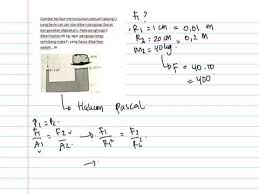 Gambar berikut menunjukkan sebuah tabung U
yang berisi zat cair dan diberi pengisap (berat
dan gesekan diabaikan). Pada penghisap 2
diberi beban 40 kg agar pengisap tetap
seimbang maka F1 yang harus diberikan
adalah...N
F1 ?
R1 = 1 cm = 0,01 m
R2 = 20 cm = 0,2 m
m2 = 40 kg
F = 40.10
= 400
Hukum Pascal
P1 = P2
F1/A1 = F2/A2 → F1/R1² = F2/R2²
→